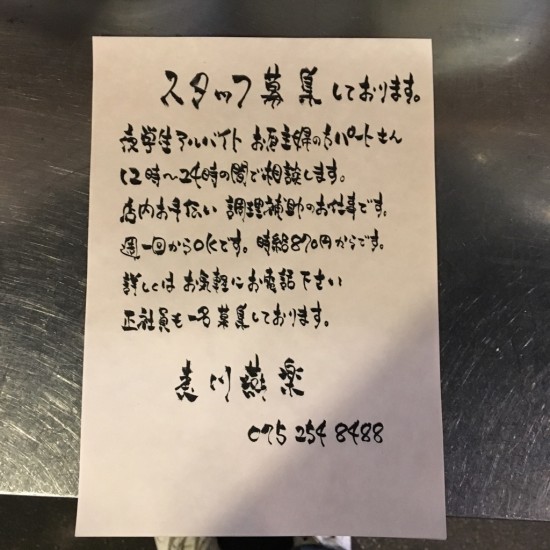 スタッフ募集しております。
学生アルバイト お昼主婦の方パートさん
12時〜24時の間で相談します。
店内お手伝い 調理補助のお仕事です。
週一回からOKです。時給870円からです。
詳しくは お気軽にお電話下さい
正社員も一名募集しております。
川燕楽
075 254 8488